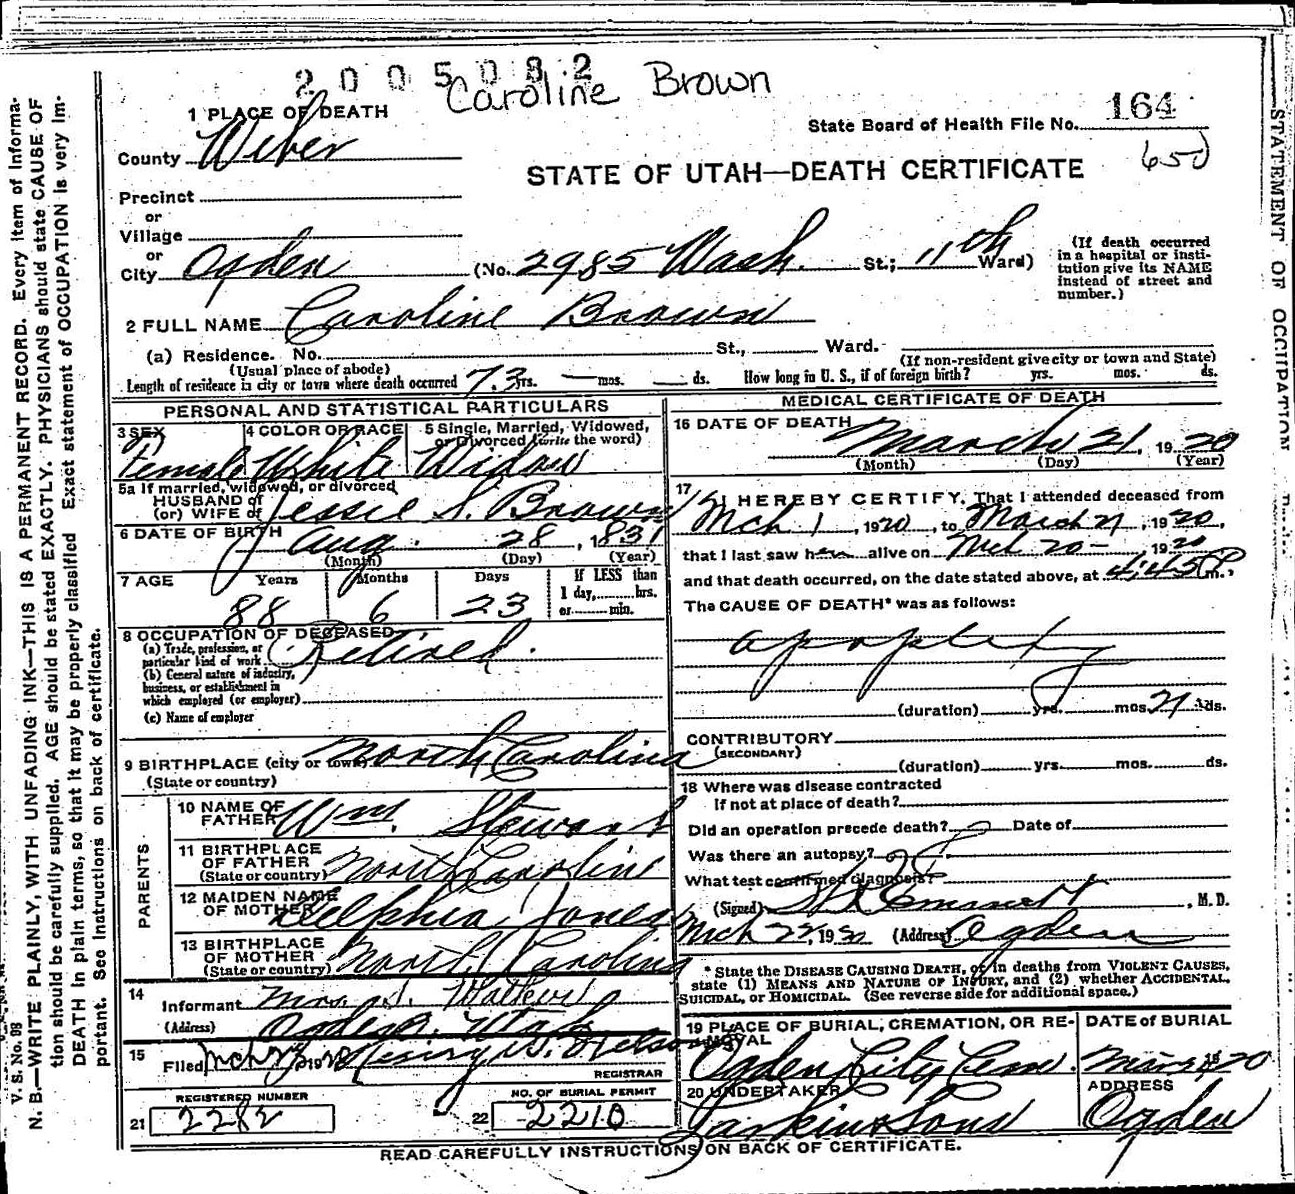 2005082
Caroline Brown
1 PLACE OF DEATH
State Board of Health File No. 164
650
County Weber
STATE OF UTAH—DEATH CERTIFICATE
Precinct
or
Village
or
City Ogden (No. 2985 Wash. St.; 11th Ward)
(If death occurred in a hospital or institution give its NAME instead of street and number.)
2 FULL NAME Caroline Brown
(a) Residence. No. St., Ward.
(Usual place of abode) (If non-resident give city or town and State)
Length of residence in city or town where death occurred 73 yrs. — mos. — ds. How long in U. S., if of foreign birth? yrs. mos. ds.
PERSONAL AND STATISTICAL PARTICULARS
3 SEX Female
4 COLOR OR RACE White
5 Single, Married, Widowed, or Divorced (write the word) Widow
5a If married, widowed, or divorced
HUSBAND of
(or) WIFE of Jessie S. Brown
6 DATE OF BIRTH Aug. 28, 1831
(Month) (Day) (Year)
7 AGE Years Months Days If LESS than
88 6 23 1 day, hrs.
or min.
8 OCCUPATION OF DECEASED
(a) Trade, profession, or
particular kind of work Retired.
(b) General nature of industry,
business, or establishment in
which employed (or employer)
(c) Name of employer
9 BIRTHPLACE (city or town) North Carolina
(State or country)
PARENTS
10 NAME OF
FATHER Wm. Stewart
11 BIRTHPLACE
OF FATHER
(State or country) North Caroline
12 MAIDEN NAME
OF MOTHER Delphia Jones
13 BIRTHPLACE
OF MOTHER
(State or country) North Carolina
14
Informant Walker
(Address) Ogden Utah
15
Filed Mch 1920 Henry W. Nelson
REGISTRAR
REGISTERED NUMBER
21 2282
NO. OF BURIAL PERMIT
22 2210
MEDICAL CERTIFICATE OF DEATH
16 DATE OF DEATH
March 21, 1920
(Month) (Day) (Year)
17
I HEREBY CERTIFY, That I attended deceased from
Mch 1, 1920, to March 21, 1920,
that I last saw her alive on Mch 20 - 1920
and that death occurred, on the date stated above, at 4:45 P m.
The CAUSE OF DEATH* was as follows:
apoplexy
(duration) yrs. mos. 21 ds.
CONTRIBUTORY
(SECONDARY)
(duration) yrs. mos. ds.
18 Where was disease contracted
if not at place of death?
Did an operation precede death? Date of
Was there an autopsy?
What test confirmed diagnosis?
(Signed) , M.D.
Mch 22, 1920 (Address) Ogden
* State the DISEASE CAUSING DEATH, or in deaths from VIOLENT CAUSES, state (1) MEANS AND NATURE OF INJURY, and (2) whether ACCIDENTAL, SUICIDAL, or HOMICIDAL. (See reverse side for additional space.)
19 PLACE OF BURIAL, CREMATION, OR REMOVAL
Ogden City Cem.
DATE of BURIAL
20
20 UNDERTAKER
Larkin & Sons
ADDRESS
Ogden
READ CAREFULLY INSTRUCTIONS ON BACK OF CERTIFICATE.
V. S. No. 98
N. B.—WRITE PLAINLY, WITH UNFADING INK—THIS IS A PERMANENT RECORD. Every item of informa-
tion should be carefully supplied. AGE should be stated EXACTLY. PHYSICIANS should state CAUSE OF
DEATH in plain terms, so that it may be properly classified Exact statement of OCCUPATION is very im-
portant. See instructions on back of certificate.
STATEMENT OF OCCUPATION